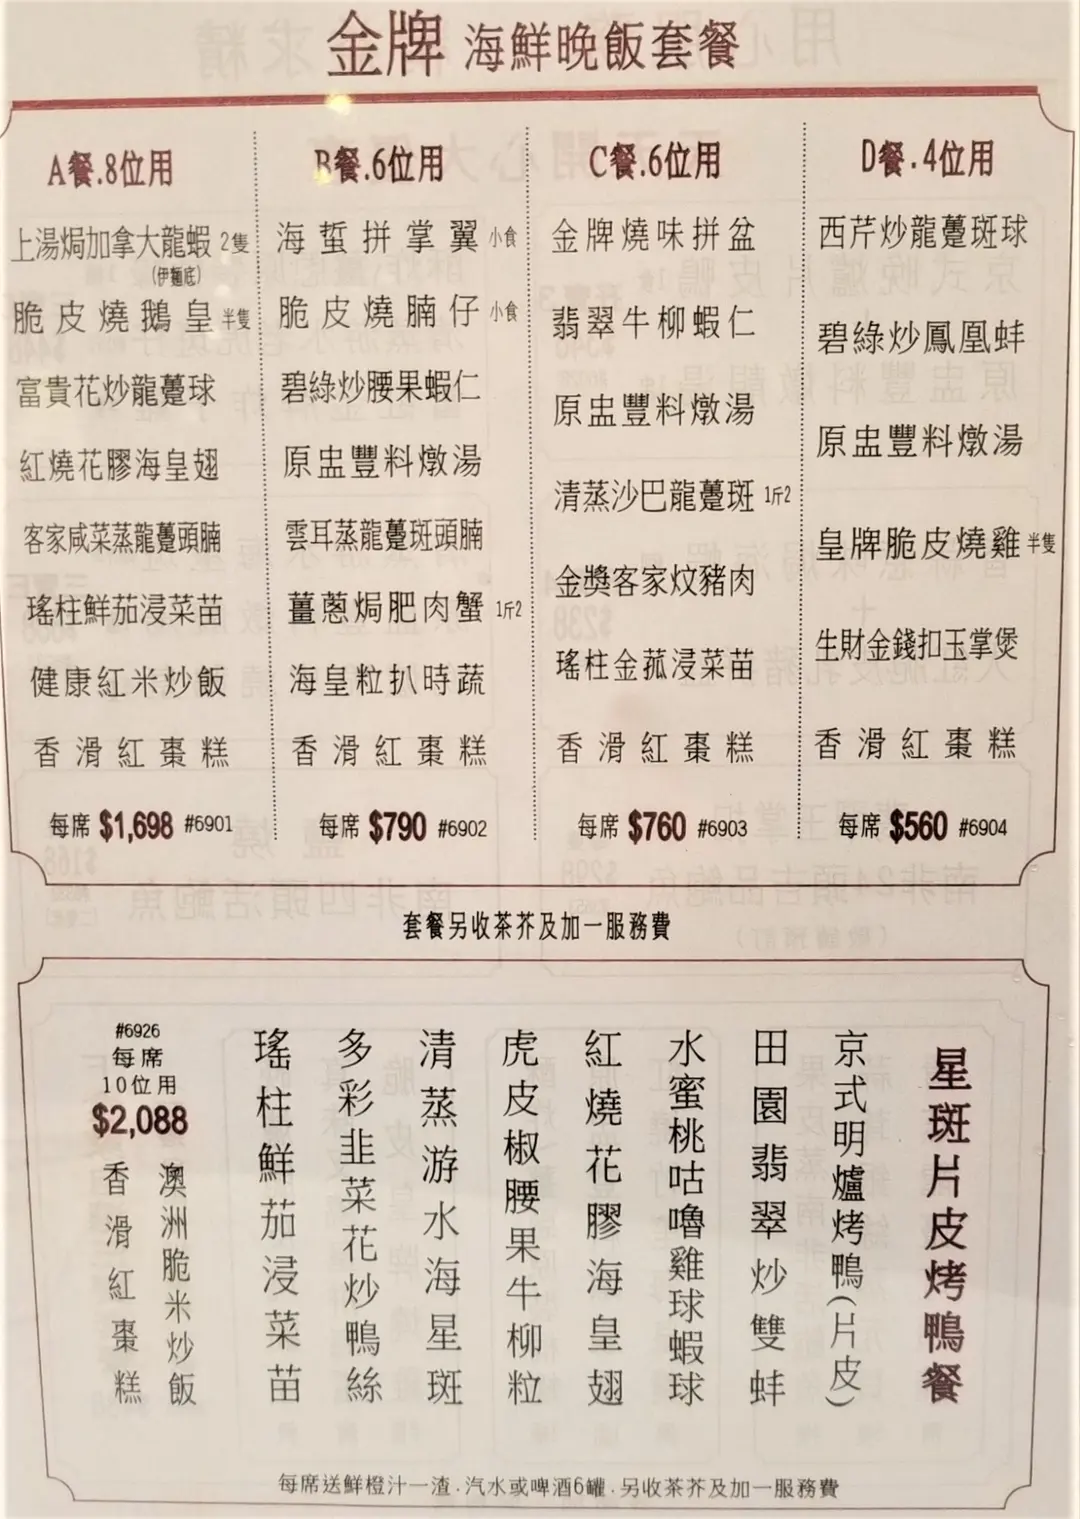 金牌 海鮮晚飯套餐
A餐.8位用
上湯焗加拿大龍蝦 2隻
(伊麵底)
脆皮燒鵝皇 半隻
富貴花炒龍躉球
紅燒花膠海皇翅
客家咸菜蒸龍躉頭腩
瑤柱鮮茄浸菜苗
健康紅米炒飯
香滑紅棗糕
每席 $1,698 #6901
B餐.6位用
海蜇拼掌翼 小食
脆皮燒腩仔 小食
碧綠炒腰果蝦仁
原盅豐料燉湯
雲耳蒸龍躉斑頭腩
薑蔥焗肥肉蟹 1斤2
海皇粒扒時蔬
香滑紅棗糕
每席 $790 #6902
C餐.6位用
金牌燒味拼盆
翡翠牛柳蝦仁
原盅豐料燉湯
清蒸沙巴龍躉斑 1斤2
金獎客家炆豬肉
瑤柱金菰浸菜苗
香滑紅棗糕
每席 $760 #6903
D餐.4位用
西芹炒龍躉斑球
碧綠炒鳳凰蚌
原盅豐料燉湯
皇牌脆皮燒雞 半隻
生財金錢扣玉掌煲
香滑紅棗糕
每席 $560 #6904
套餐另收茶芥及加一服務費
星斑片皮烤鴨餐
京式明爐烤鴨(片皮)
田園翡翠炒雙蚌
水蜜桃咕嚕雞球蝦球
紅燒花膠海皇翅
虎皮椒腰果牛柳粒
清蒸游水海星斑
多彩韭菜花炒鴨絲
瑤柱鮮茄浸菜苗
澳洲脆米炒飯
香滑紅棗糕
#6926
每席
10位用
$2,088
每席送鮮橙汁一渣.汽水或啤酒6罐.另收茶芥及加一服務費